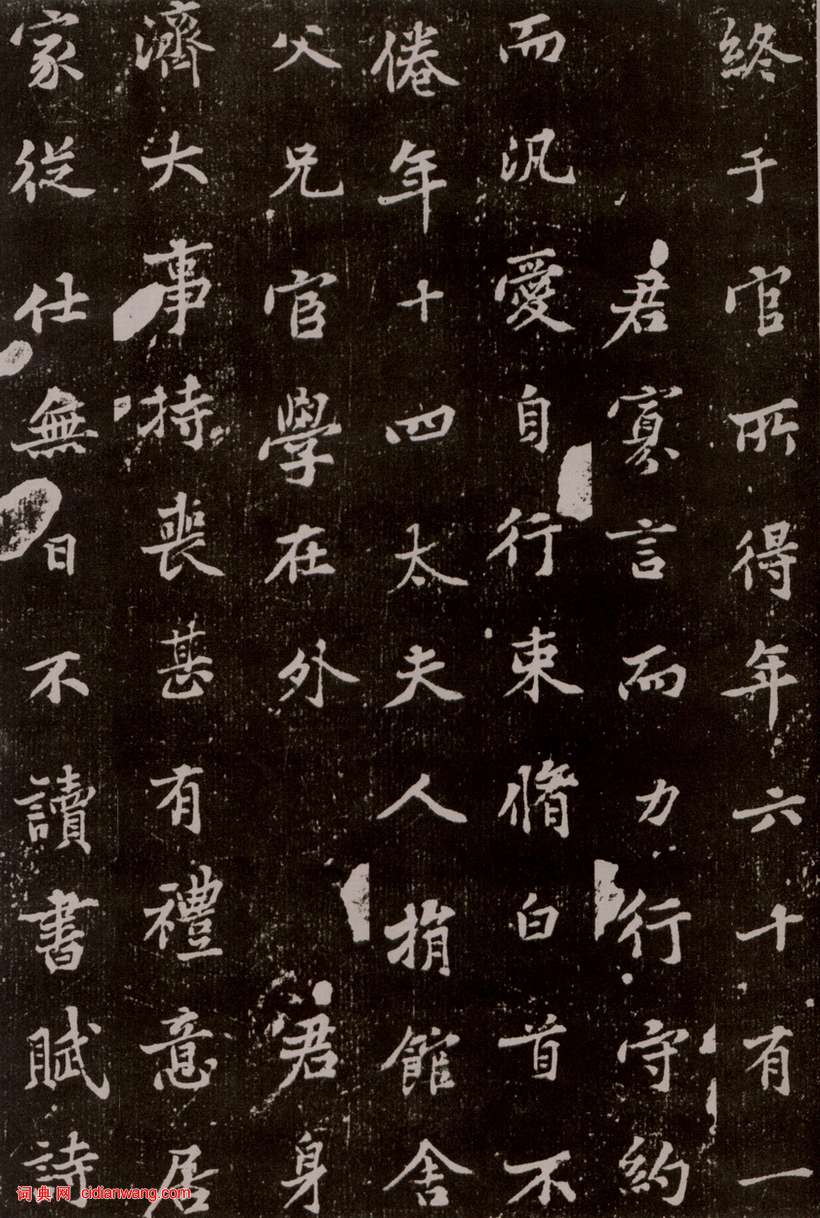 終于官所得年六十有一
君寡言而力行守約
而汎愛自行束脩白首不
倦年十四太夫人捐館舍
父兄官學在外君身
濟大事持喪甚有禮意居
家從仕無日不讀書賦詩
词典网 cidianwang.com